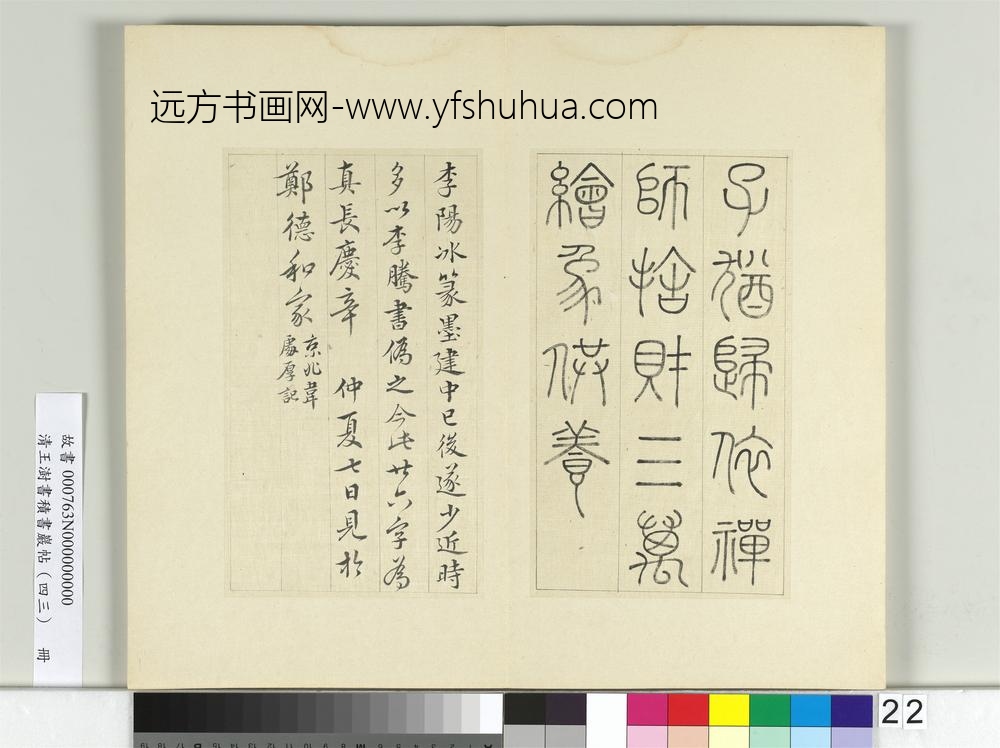 远方书画网-www.yfshuhua.com
子猶歸依禪
師捨財三萬
繪象供養
李陽冰篆墨建中已後遂少近時
多以李騰書偽之今此廿六字為
真長慶辛 仲夏七日見於
鄭德和家 京兆韋
處厚記
故書 000763N000000000
清王澍書積書巖帖(四三) 冊
22